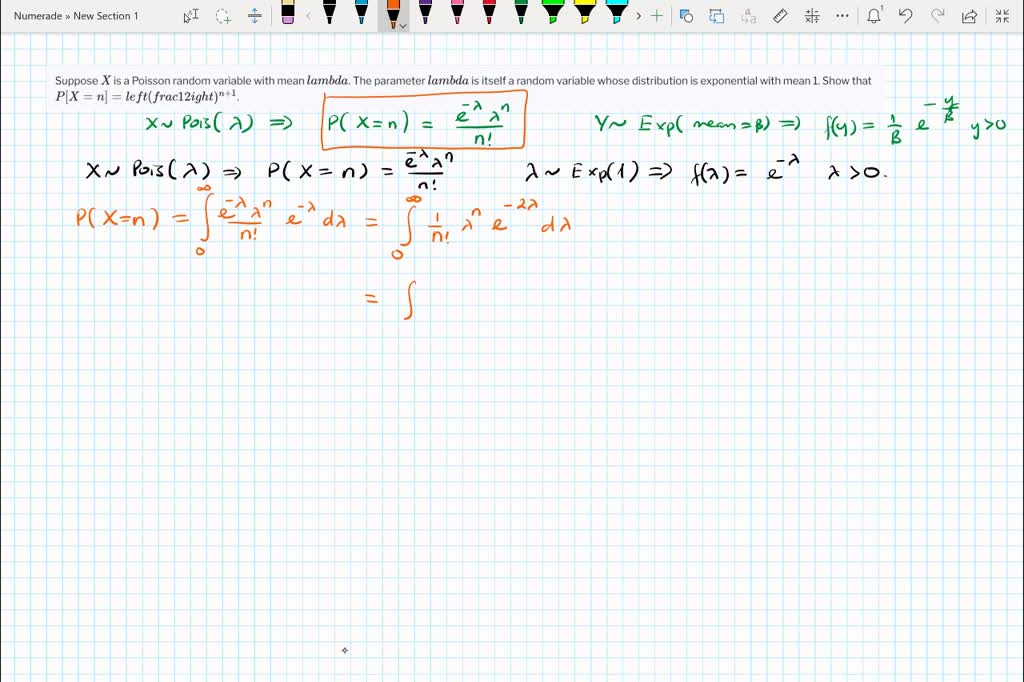 Numerade » New Section 1
Suppose X is a Poisson random variable with mean lambda. The parameter lambda is itself a random variable whose distribution is exponential with mean 1. Show that
P[X = n] = left(frac12ight)^{n+1}.
X ~ Pois(λ) ⇒ P(X=n) = e^{-λ} λ^n / n! Y ~ Exp(mean=β) ⇒ f(y) = 1/β e^{-y/β} y>0
X ~ Pois(λ) ⇒ P(X=n) = e^{-λ} λ^n / n! λ ~ Exp(1) ⇒ f(λ) = e^{-λ} λ>0.
P(X=n) = ∫_0^∞ e^{-λ} λ^n / n! e^{-λ} dλ = ∫_0^∞ 1/n! λ^n e^{-2λ} dλ
= ∫